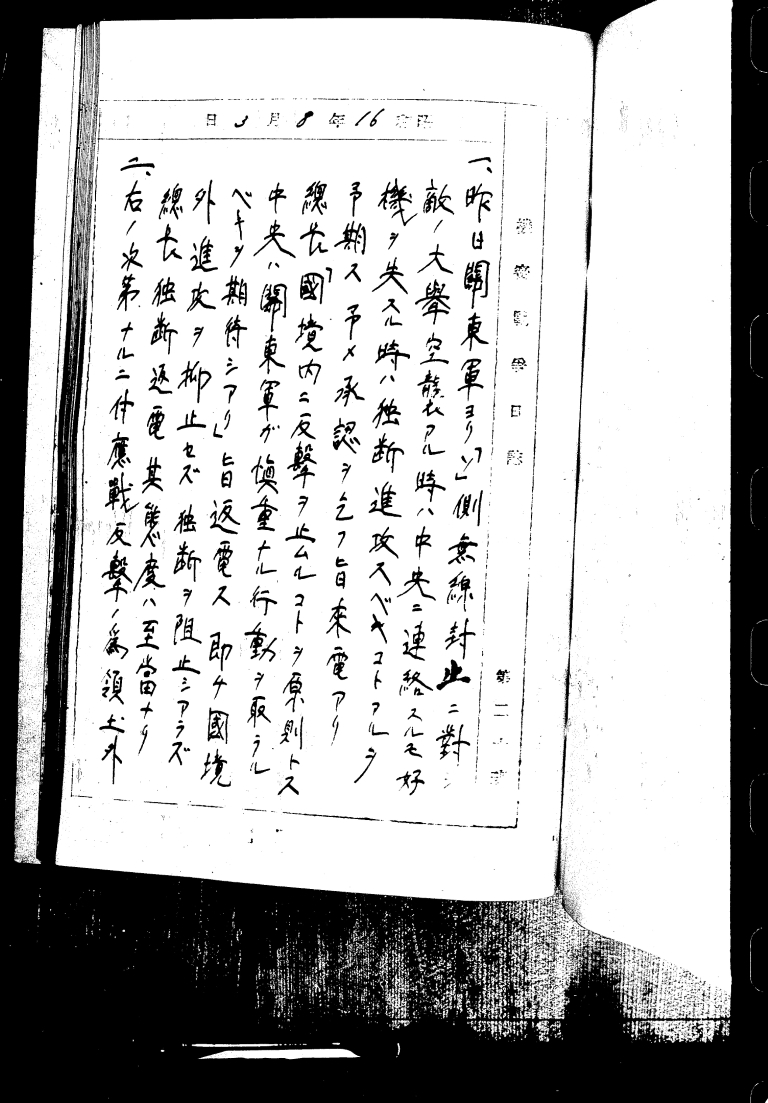 昭和16年8月3日
機密戰爭日誌
第二十班
一、昨日關東軍ヨリ「ソ」側無線封止ニ對シ
敵ノ大擧空襲アル時ハ中央ニ連絡スルモ好
機ヲ失スル時ハ独断進攻スベキコトアルヲ
予期ス 予メ承認ヲ乞フ旨来電アリ
總長「國境内ニ反擊ヲ止ムルコトヲ原則トス
中央ハ關東軍ガ慎重ナル行動ヲ取ラル
ベキヲ期待シアリ」旨返電ス 即チ國境
外進攻ヲ抑止セズ独断ヲ阻止シアラズ
總長独断返電其態度ハ至當ナリ
二、右ノ次第ナルニ付應戰反擊ノ為領土外